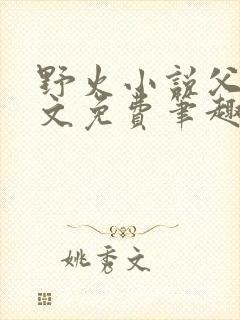 野火小说父
文免费笔趣
姚秀文